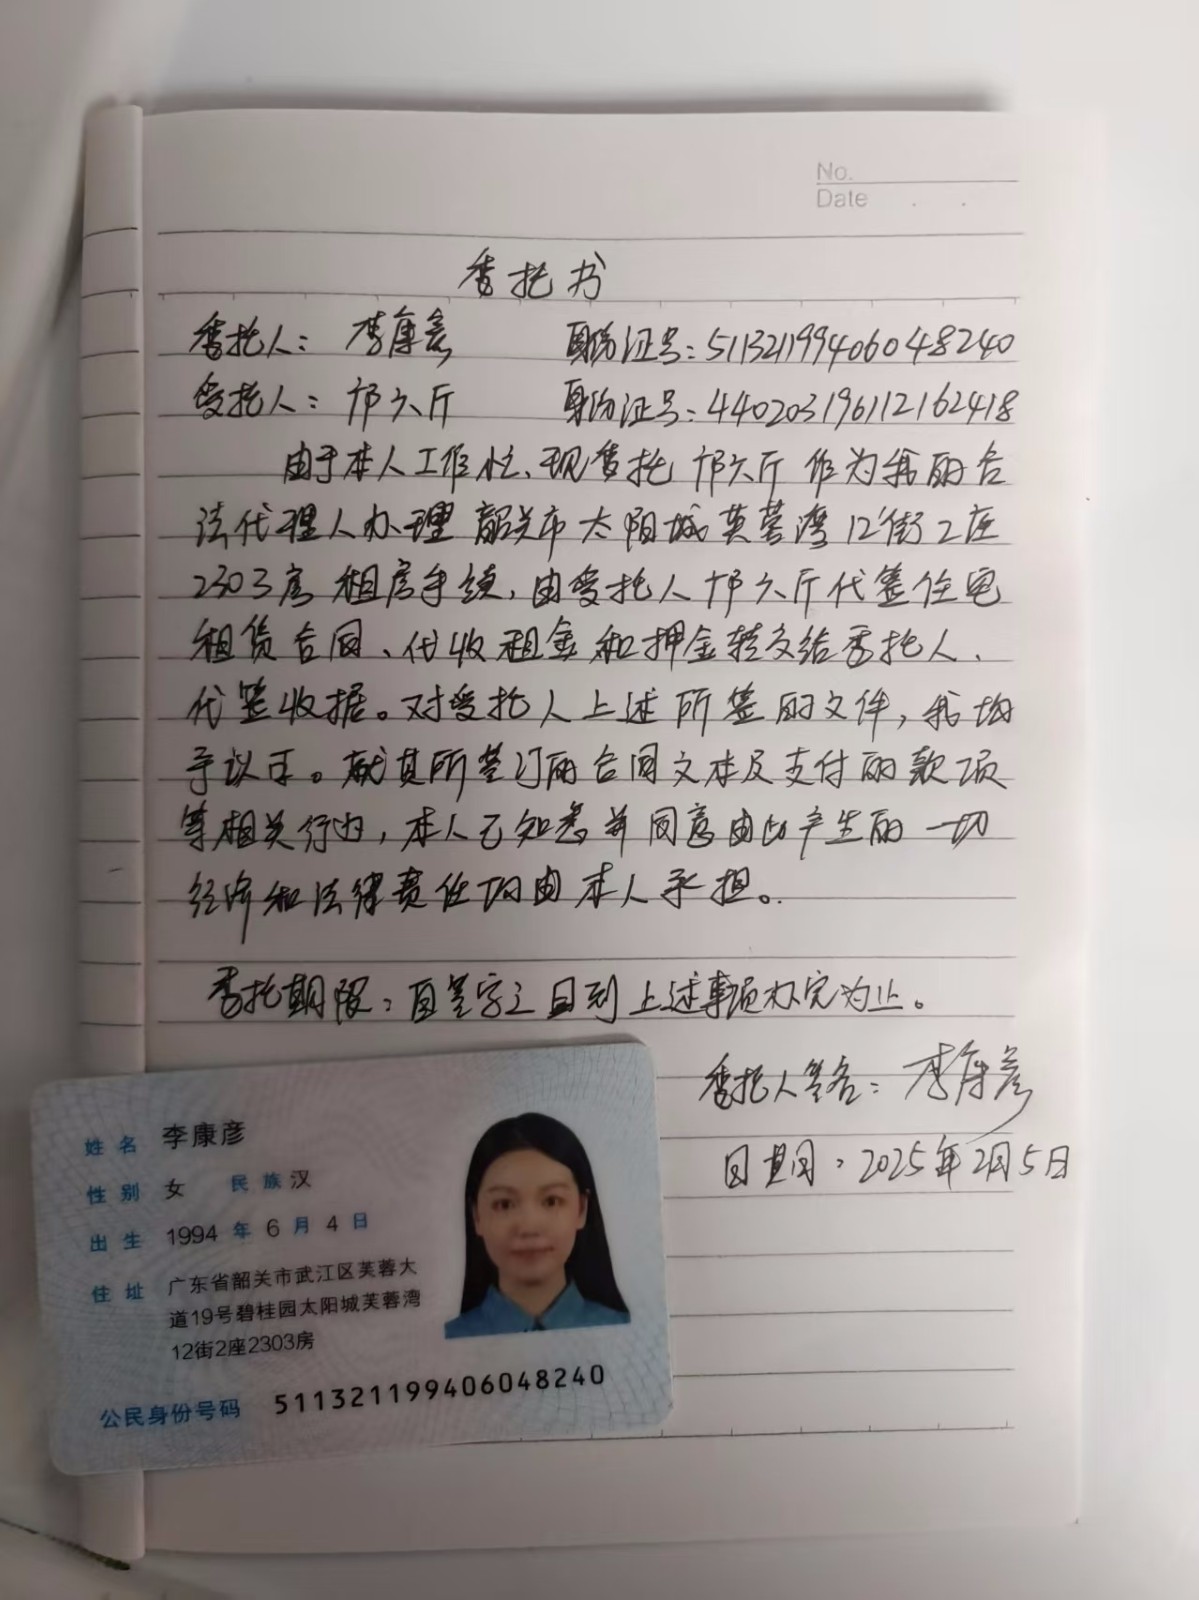 No.
Date
委托书
委托人：李康彦 身份证号：511321199406048240
受托人：邝六斤 身份证号：440203196112162418
由于本人工作忙、现委托邝六斤作为我的合
法代理人办理韶关市太阳城芙蓉湾12街2座
2303房租房手续，由受托人邝六斤代签住宅
租赁合同、代收租金和押金转交给委托人、
代签收据。对受托人上述所签的文件，我均
予以承认。就其所签订的合同文本及支付的款项
等相关行为，本人已知悉并同意由此产生的一切
经济和法律责任均由本人承担。
委托期限：自签字之日到上述事项办完为止。
委托人签名：李康彦
日期：2025年2月5日
姓名 李康彦
性别 女 民族 汉
出生 1994年6月4日
住址 广东省韶关市武江区芙蓉大
道19号碧桂园太阳城芙蓉湾
12街2座2303房
公民身份号码 511321199406048240